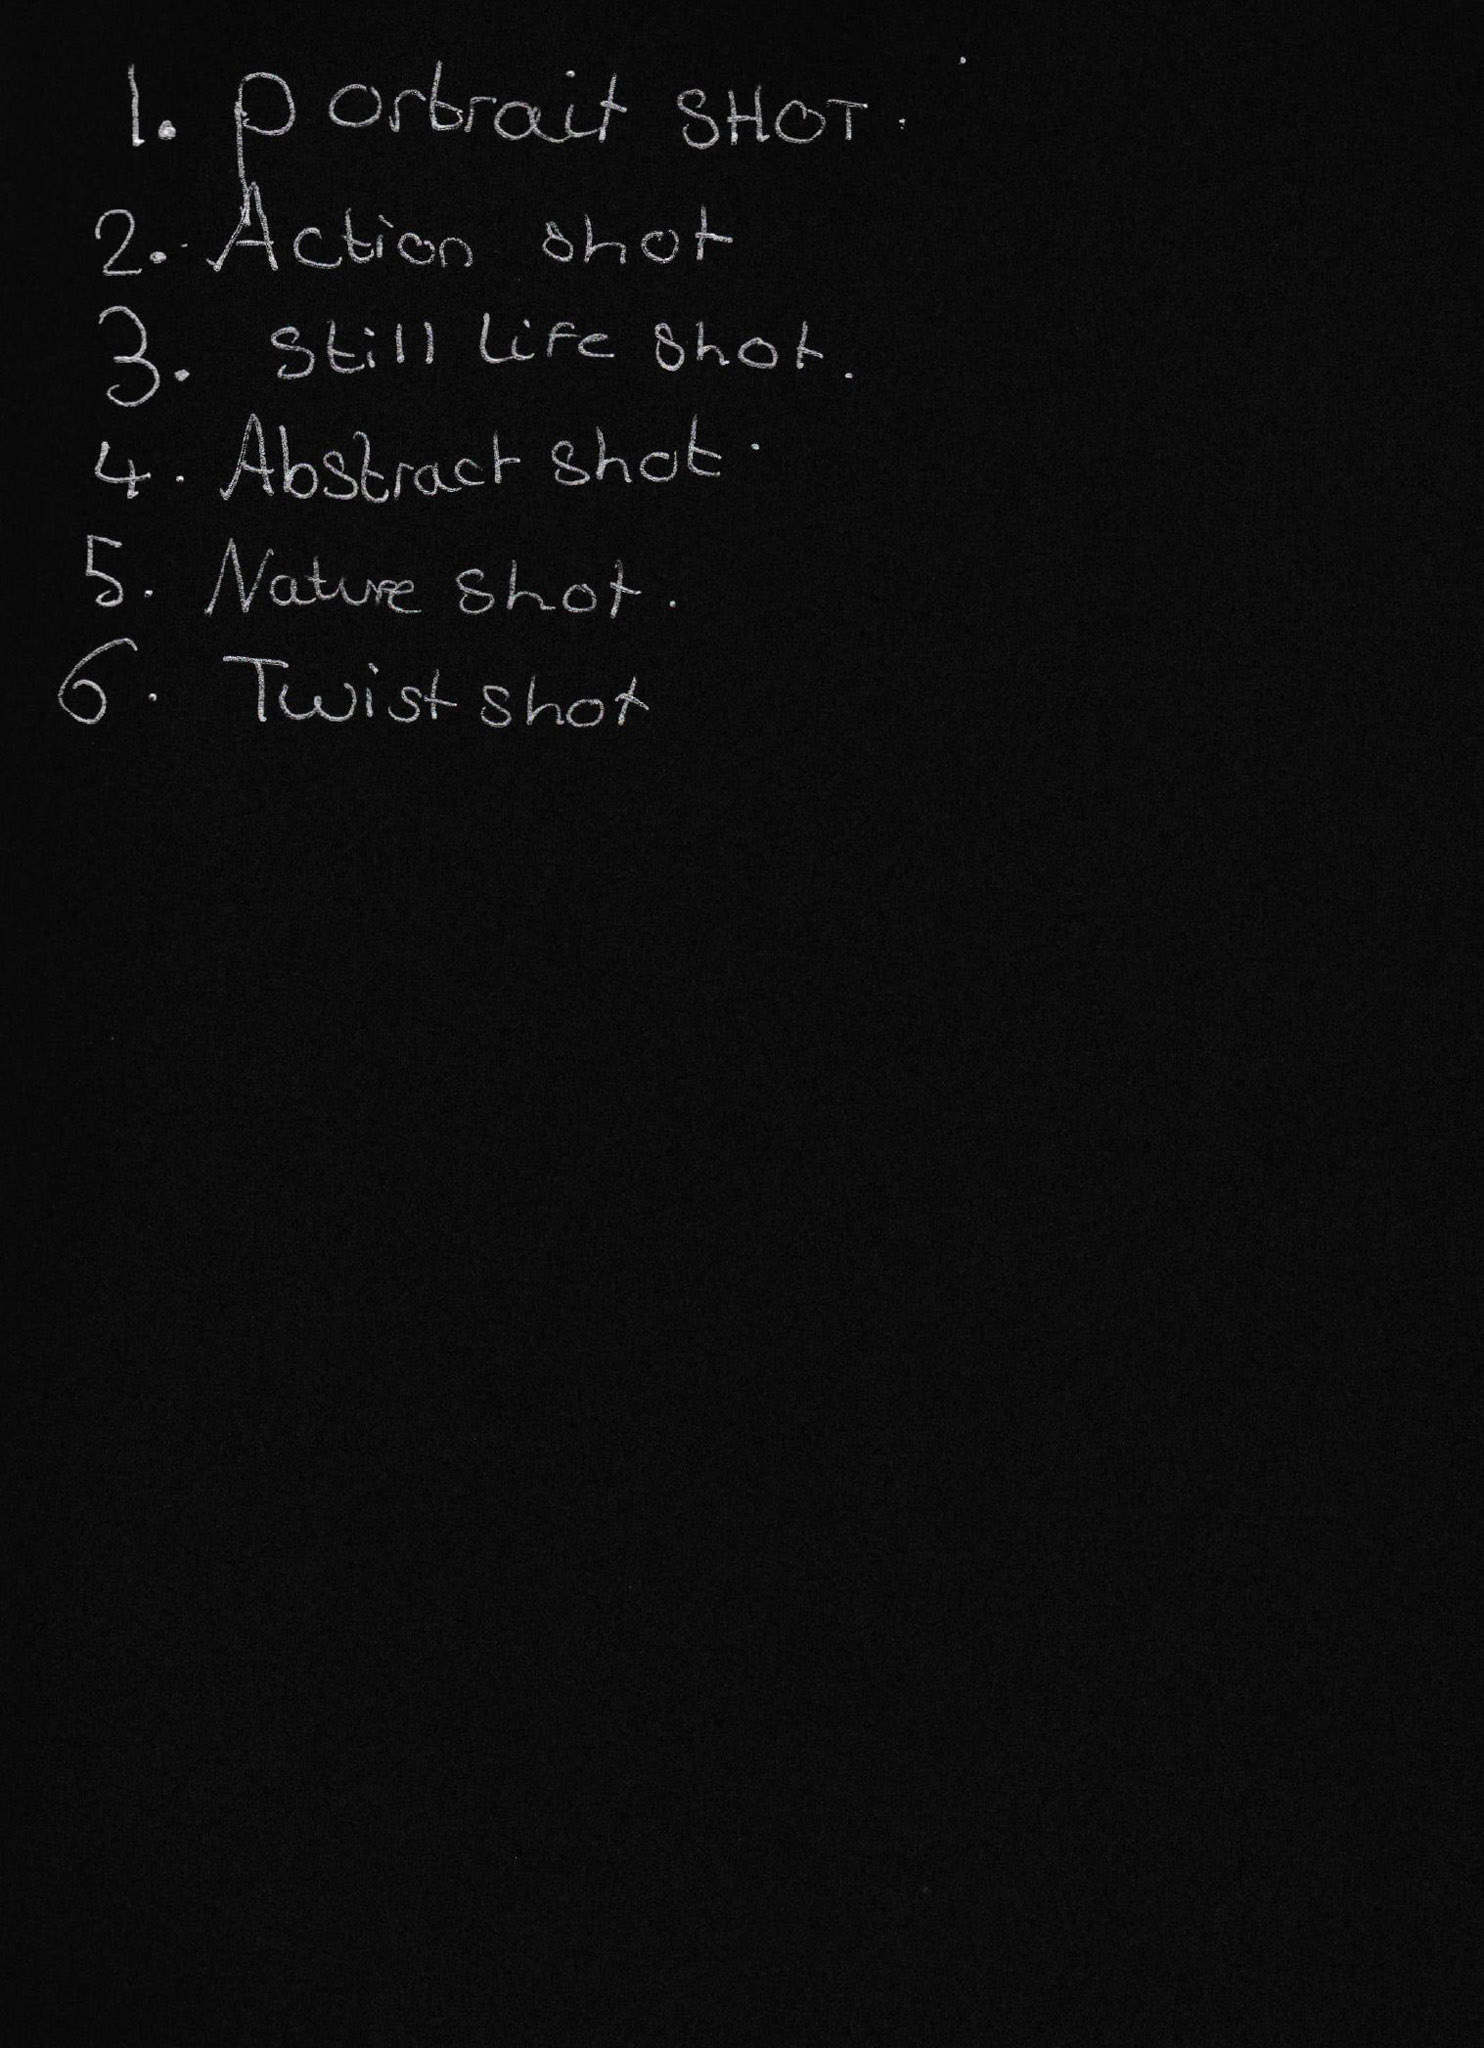 1. portrait SHOT.
2. Action shot
3. still Life shot.
4. Abstract shot.
5. Nature shot.
6. Twist shot